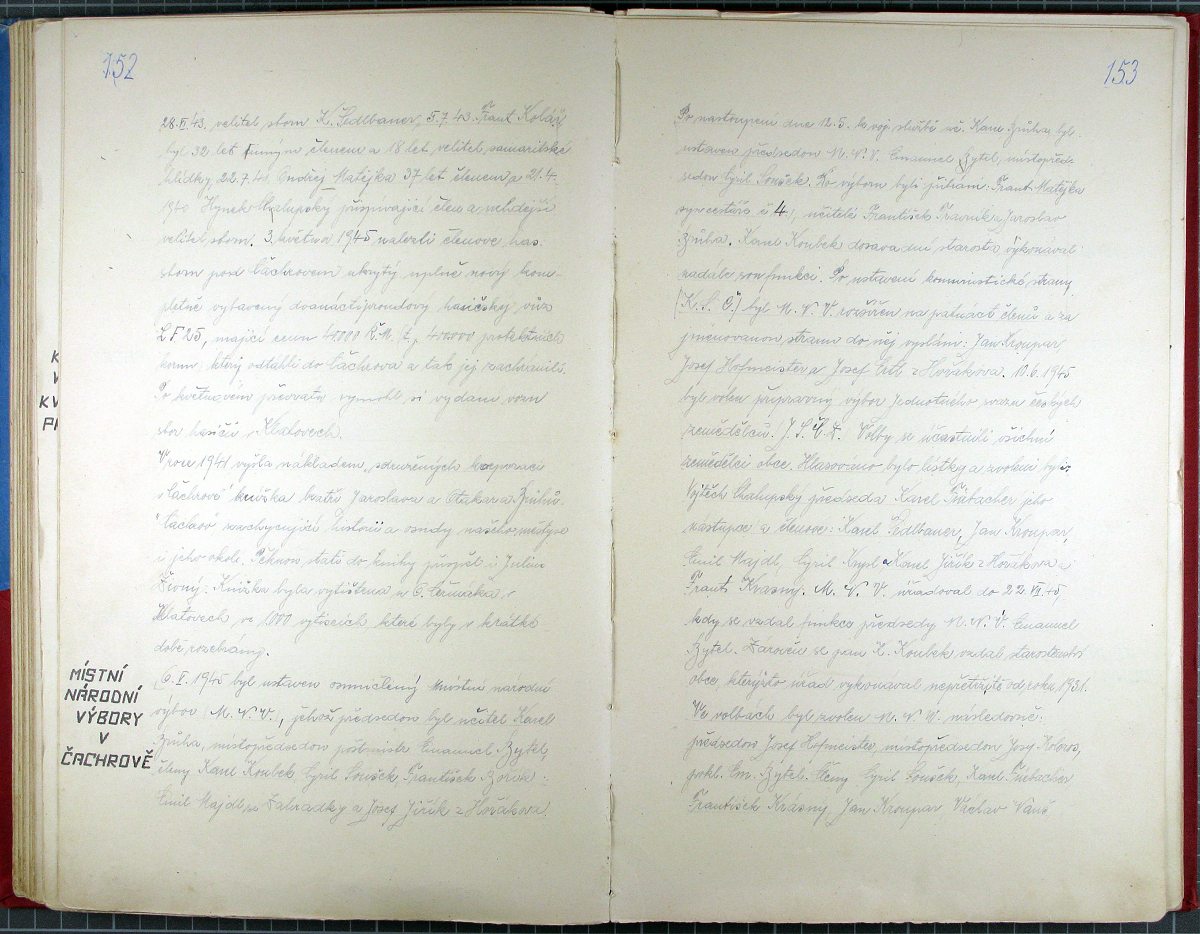 152
28.VI.43. velitel sboru K. Sedlbauer, 5.7.43. Frant. Kolář,
byl 32 let činným členem a 18 let velitel samaritské
hlídky, 22.7.41. Ondřej Matějka 37 let členem a 21.4.
1940 Hynek Chalupský přispívající člen a někdejší
velitel sboru. 3. května 1945 nalezli členové has.
sboru pod Čáchrovem ukrytý úplně nový kom-
pletně vybavený dvanáctiproudový hasičský vůz
LF 25, mající cenu 40000 Ř.M. (t.j. 400000 protektních
korun, který odtáhli do Čáchrova a tak jej zachránili.
Po květnovém převratu vymohl si vydání vozu
sbor hasičů v Klatovech.
V roce 1941 vyšla nákladem „sdružených korporací
v Čáchrově" knížka bratří Jaroslava a Otakara Zrůhů
"Čáchrov" zachycující historii a osudy našeho městyse
i jeho okolí. Pěknou statí do knihy přispěl i Julius
Knížka byla vytištěna u Čermáka v
Klatovech ve 1000 výtiscích, které byly v krátké
době rozebrány.
MÍSTNÍ
NÁRODNÍ
VÝBORY
V
ČACHROVĚ
6.V.1945 byl ustaven osmičlený místní národní
výbor (M.N.V.), jehož předsedou byl učitel Karel
Zrůha, místopředsedou poštmistr Emanuel Bytel,
členy Karel Koubek, Cyril Soušek, František
Emil Majdl ze Zahrádky a Josef Jiřík z Hořákova.
153
Po nastoupení dne 12.5. k voj. službě uč. Karel Zrůha byl
ustaven předsedou M.N.V. Emanuel Bytel, místopřed-
sedou Cyril Soušek. Do výboru byli přibráni: Frant. Matějka
syn cestáře č 4, učitelé František Trávník a Jaroslav
Zrůha. Karel Koubek dosavadní starosta vykonával
nadále svou funkci. Po ustavení komunistické strany
(K.S.Č.) byl M.N.V. rozšířen na patnáct členů a za
jmenovanou stranu do něj vysláni: Jan Kroupar
Josef Hofmeister a Josef Ertl z Hořákova. 10.6.1945
byl volen přípravný výbor Jednotného svazu českých
zemědělců (J.S.Č.Z. Volby se účastnili všichni
zemědělci obce. Hlasováno bylo lístky a zvoleni byli:
Vojtěch Chalupský předseda Karel Fürbacher jeho
nástupce a členové: Karel Sedlbauer, Jan Kroupar,
Emil Majdl, Cyril a Karel Jiřík z Hořákova a
Frant. Krásný. M.N.V. úřadoval do 22.VII.45,
kdy se vzdal funkce předsedy M.N.V. Emanuel
Bytel. Zároveň se pan K. Koubek vzdal starostenství
obce, kterýžto úřad vykonával nepřetržitě od roku 1931.
Ve volbách byl zvolen M.N.V. následovně:
předsedou Josef Hofmeister, místopředsedou Josef Koloros,
pokl. Em. Bytel. Členy Cyril Soušek, Karel Fürbacher,
František Krásný, Jan Kroupar, Václav Váně